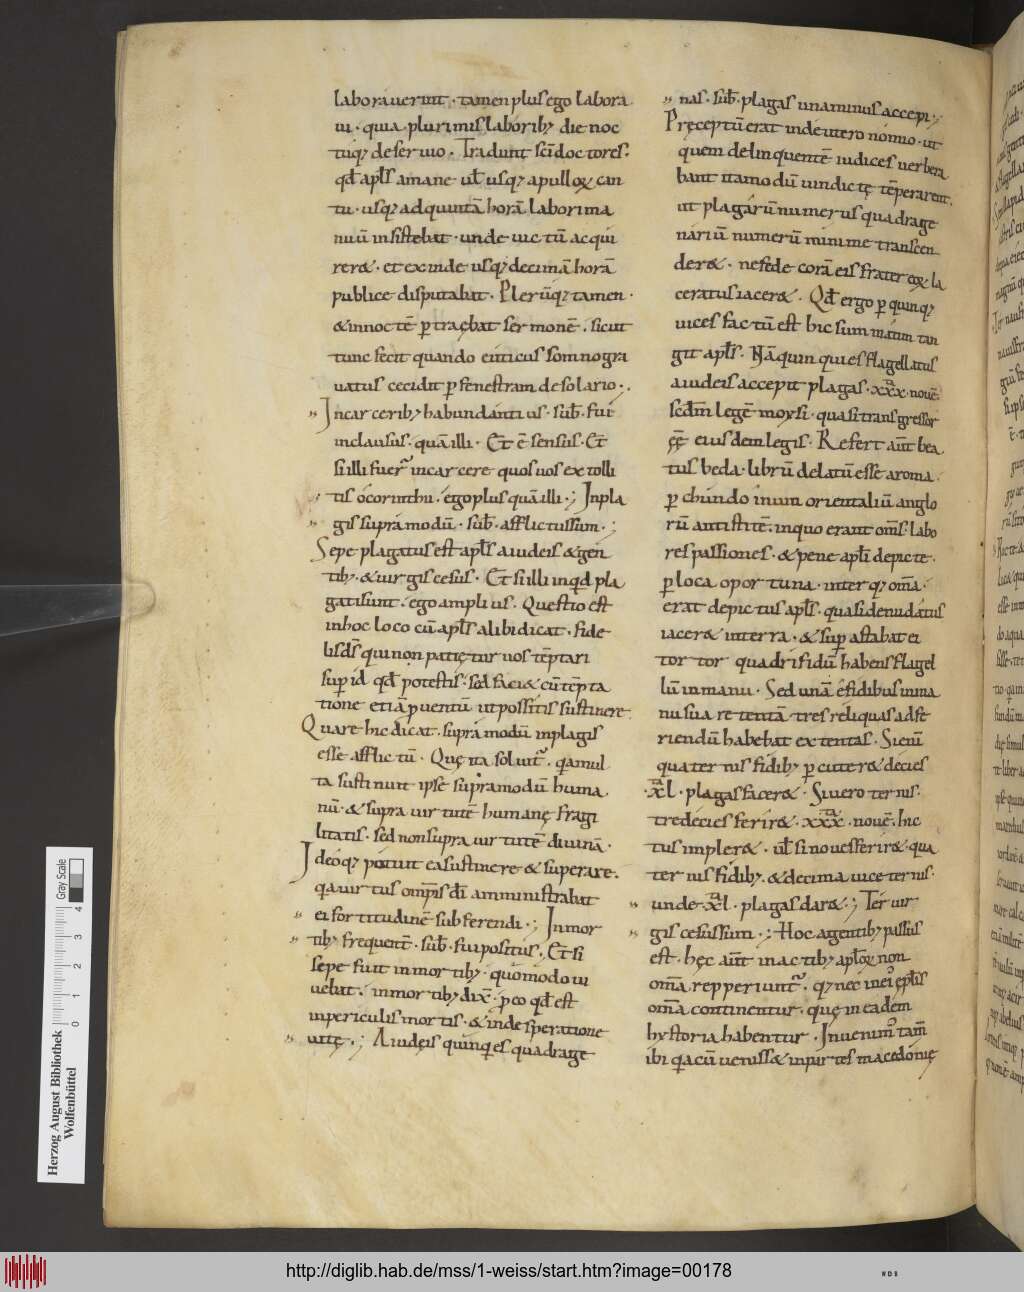 laboraverunt · tamen plus ego labora
vi · quia plurimis laborib; die noc
tuq; deservio · Tradunt sc̄i doctores·
qđ apl̄s a mane ul̄ usq; apullox can
tu · usq; ad quintā horā labori ma
nuū insistebat · unde victū acqui
rer& · et exinde usq; decimā horā
publice disputabat · Plerūq; tamen ·
& in nocte p̄traębat sermonē · sicut
tunc fecit quando euticus somno gra
vatus cecidit p̄ fenestram de solario ·,
Incarcerib; habundantius · sub̄ · fui
inclausus · quā illi · Et ē sensus · Et
si illi fuer̄ in carcere quos vos extolli
tis o corinthii · ego plus quā illi · ; In pla
gis supra modū · sub̄ · afflictus sum · ;
Sepe plagatus est apl̄s a iudeis & gen
tib; · & virgis cesus · Et si illi inqđ pla
gati sunt · ego amplius · Questio est
in hoc loco cū apl̄s alibi dicat · fide
lis ds̄ qui non patiętur vos tēptari
sup̄ id qđ potestis · sed faci& cū tēpta
tione etiā p̄ventū ut possitis sustinere
Quare hic dicat · supra modū in plagis
esse afflictū · Quę ita solvit̄ · q̄a mul
ta sustinuit ipse supra modū huma
nū · & supra virtutē humanę fragi
litatis · sed non supra virtutē divinā ·
Ideoq; potuit ea sustinere & superare ·
q̄a virtus omp̄is dī amministrabat
ei fortitudinē sub ferendi · ; In mor
tib; frequent̄ · sub̄ · fui positus · Et si
sepe fuit in mortib; · quomodo vi
vebat · in mortib; dix̄ · p̄ eo qđ est
in periculis mortis · & in desperatione
vitę · ; A iudęis quinq̄es quadrage
nas · sub̄ · plagas una minus accepi · ;
Pręceptū erat in deutero nomio · ut
quem delinquentē iudices verbera
bant ita modū vindictę tēperarent ·
ut plagarū numerus quadrage
nariū numerū minime transcen
der& · ne fede corā eis frater ex la
ceratus iacer& · Qđ ergo p̄ quinq;
vices factū est hic summatim tan
git apl̄s · Nā quinquies flagellatus
a iudeis accepit plagas · xxx · novē ·
scđm legē moysi · quasi transgressor
ęę eiusdem legis · Refert aūt bea
tus beda · librū delatū esse a roma ·
p̄ chundoinum orientaliū anglo
rū antistitē · in quo erant oms̄ labo
res passiones · & pene apl̄i depicte ·
p̄ loca oportuna · inter q; om̄a ·
erat depictus apl̄s · quasi denudatus
iacer& in terra · & sup̄ astabat ei
tortor quadrifidū habens flagel
lū in manu · Sed unā e fidibus in ma
nu sua retentā tres reliquas ad fe
riendū habebat extentas · Si enī
quaternis fidib; p̄cuter& decies
· xl · plagas facer& · Si vero ternis ·
tredecies ferir& · xxx · novē · hic
tus impler& · ul̄ si novies ferir& · qua
ternis fidib; · & decima vice ternis ·
unde · xl · plagas dar& · ; Ter vir
gis cesus sum · ; Hoc agentib; passus
est · hęc aūt in actib; apl̄ox non
om̄a repperiunt̄ · q; nec in ei ep̄lis
om̄a continentur · quę in eadem
hystoria habentur · Invenim̄ tam̄
ibi q̄a cū veniss& in partes macedonię
Herzog August Bibliothek
Wolfenbüttel
0 1 2 3 4
Gray Scale
http://diglib.hab.de/mss/1-weiss/start.htm?image=00178